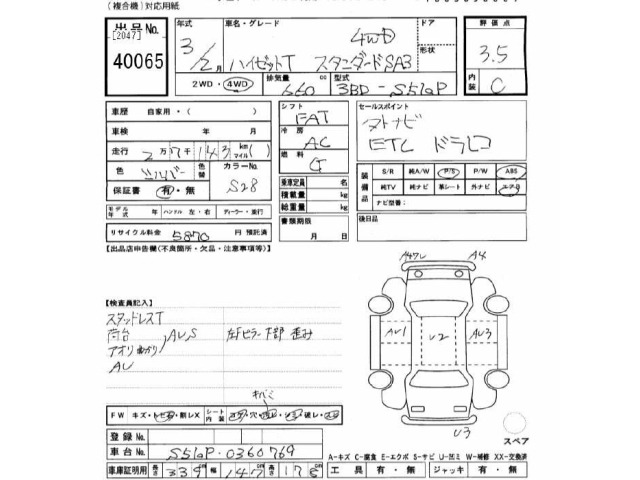 (複合機)対応用紙
出品No.
[2047]
40065
年式 車名・グレード ドア 評価点
3/2月 ハイゼットT スタンダードSA3 4WD 形状 3.5
2WD・4WD 排気量 660 cc 型式 3BD-S510P 内装 C
車歴 自家用・( )
シフト FAT
セールスポイント
車検 年 月
冷房 AC
ナビ
ETC ドラレコ
走行 2万7千143 km(マイル)
燃料 G
色 シルバー 色替 カラーNo. S28
保証書 有・無
乗車定員 名
積載量 kg
総重量 kg
装備品 S/R 純A/W P/S P/W ABS
純TV 純ナビ 革シート 外ナビ エアB
ナビ型番:
モデル年式 年 ハンドル 左・右 ディーラー・並行
書類期限 月 日
後日品
リサイクル料金 5870 円 預託済
【出品店申告欄(不良箇所・欠品・注意事項等)】
A4 A4
【検査員記入】
スタッドレスT
荷台 AUS 左Fピラー下部 歪み
アオリ曲がり
AU
AU1 U2 AU3
キバミ
FW キズ・トビ石・割レX シート内装 コゲ・穴 破レ
U3
スペア
登録No.
車台No. S510P-0360769
A-キズ C-腐食 E-エクボ S-サビ U-凹ミ W-補修 XX-交換済
車庫証明用 長さ 339 cm 幅 147 cm 高さ 178 工具 有・無 ジャッキ 有・無